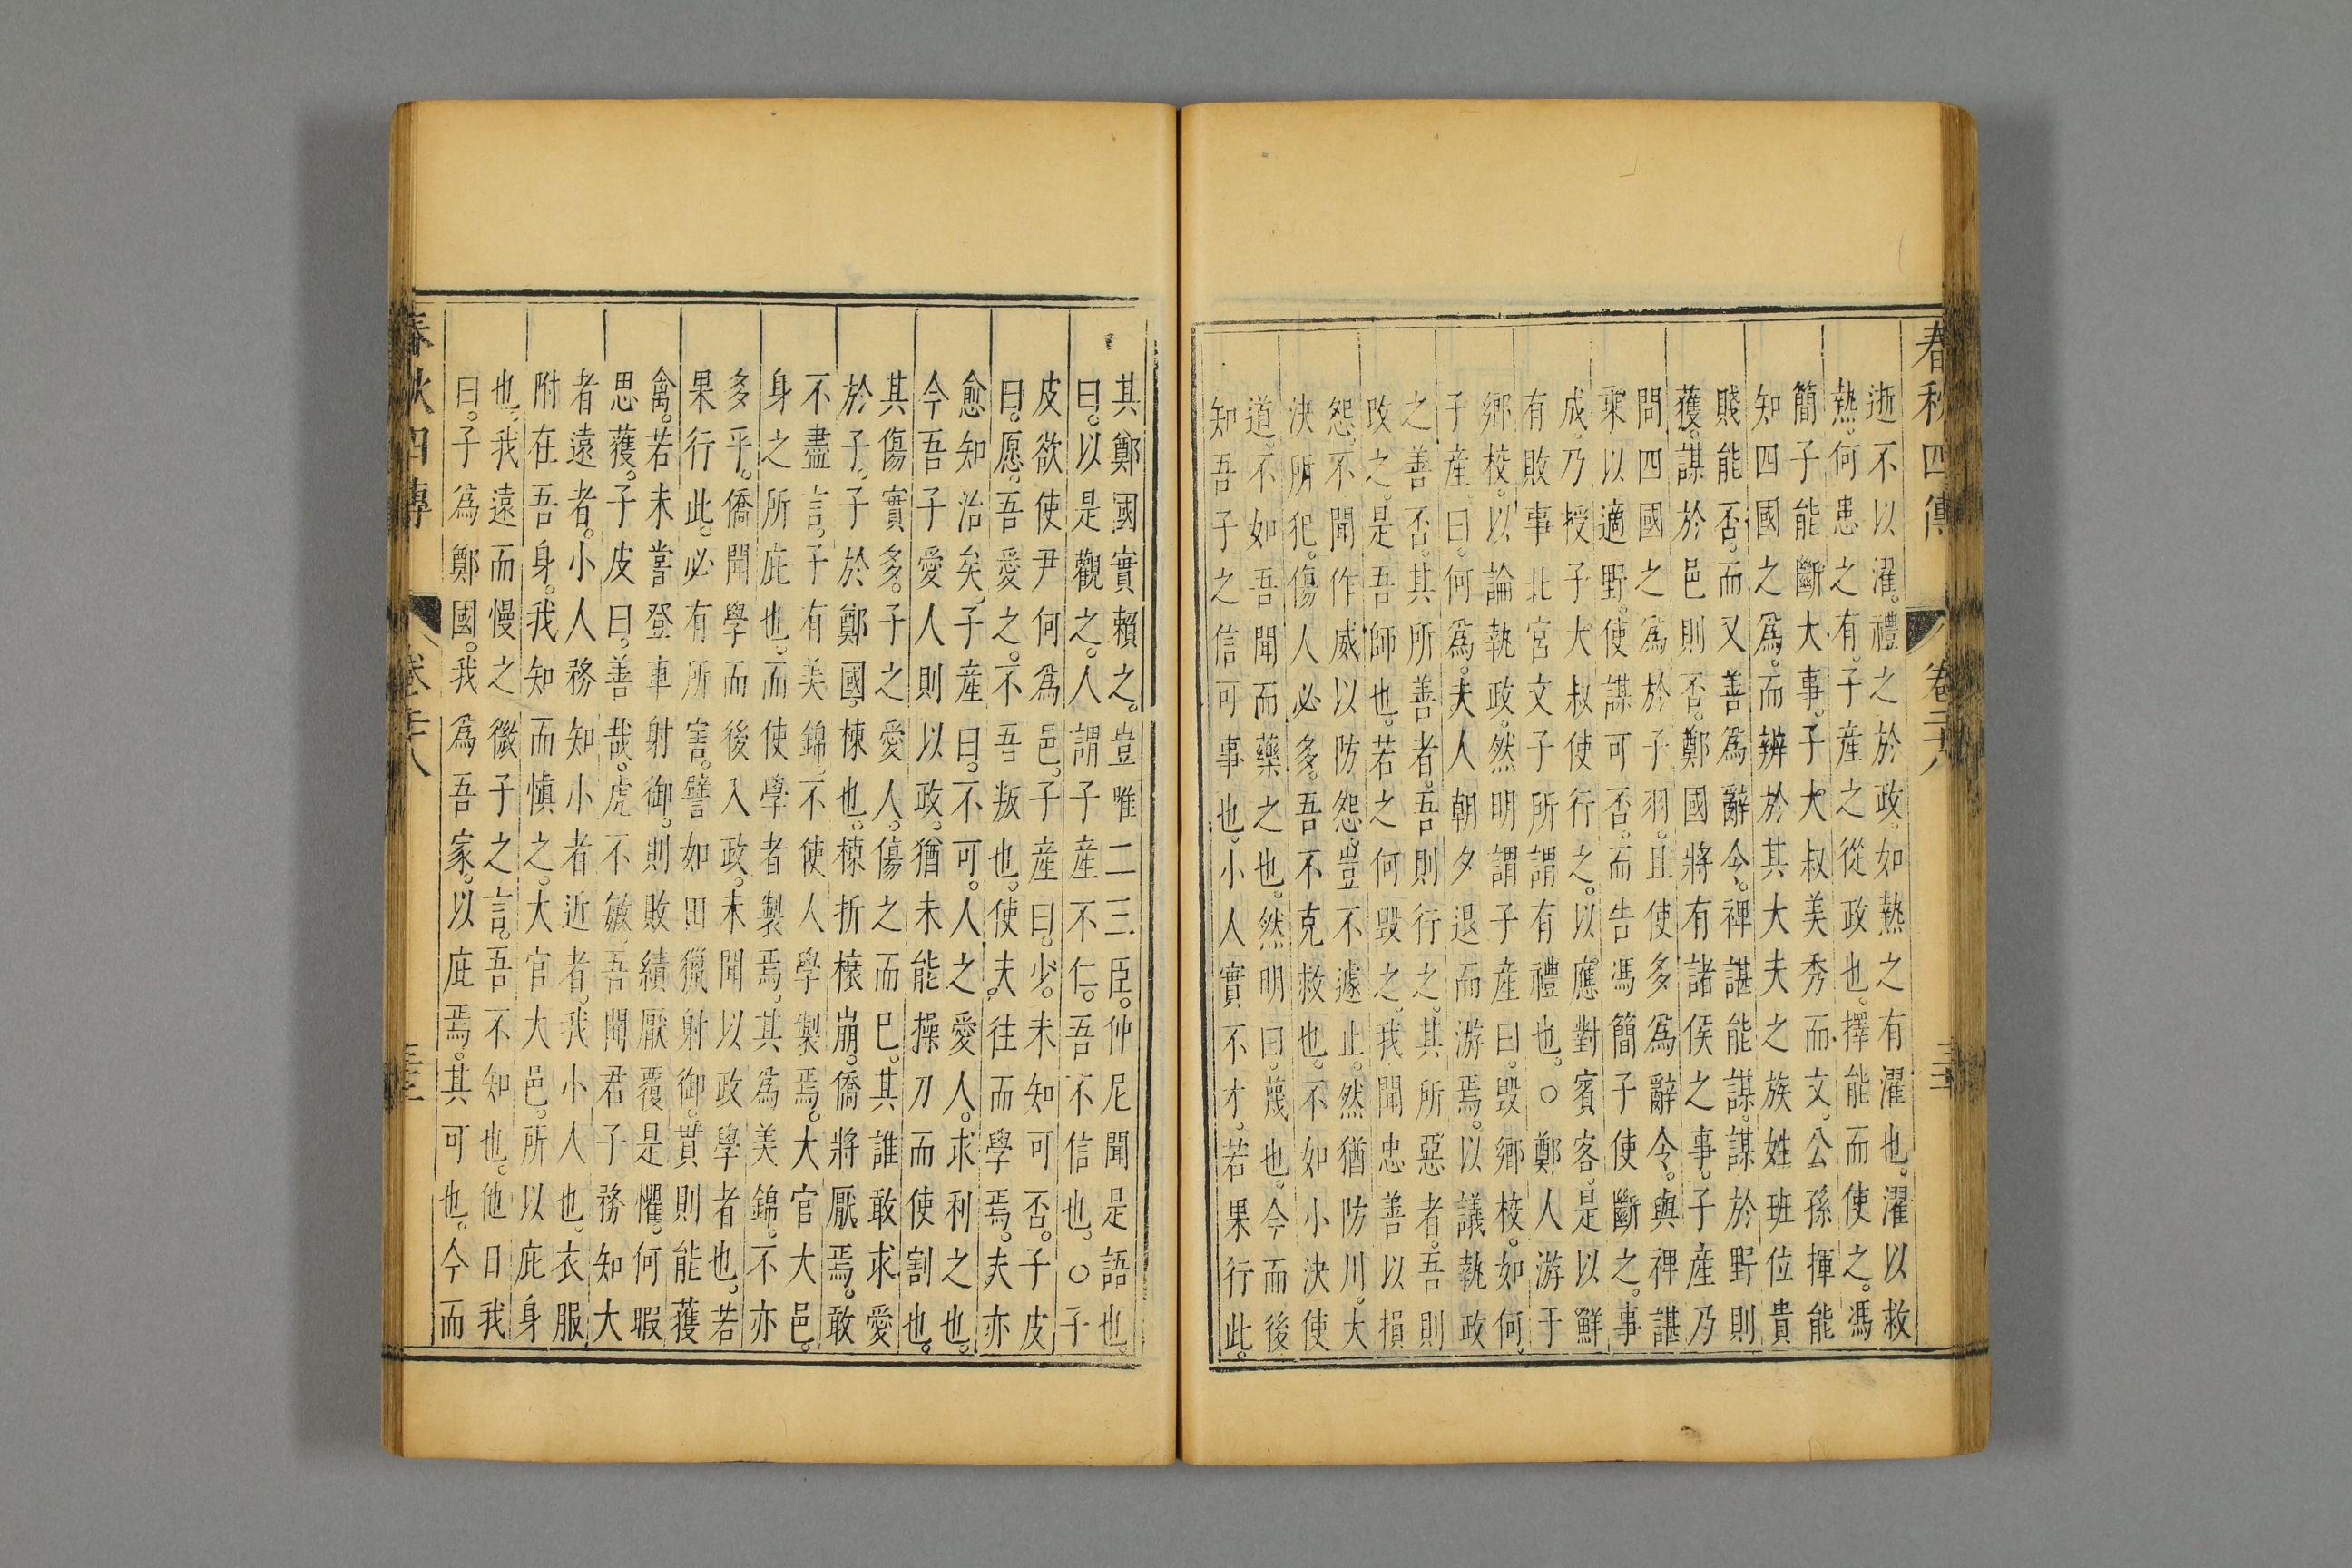 春秋四傳 卷二十八
逝不以濯。禮之於政。如熱之有濯也。濯以救
熱。何患之有。子産之從政也。擇能而使之。馮
簡子能斷大事。子大叔美秀而文。公孫揮能
知四國之爲。而辨於其大夫之族姓班位貴
賤能否。而又善爲辭令。裨諶能謀。謀於野則
獲。謀於邑則否。鄭國將有諸侯之事。子産乃
問四國之爲於子羽。且使多爲辭令。與裨諶
乘以適野。使謀可否。而告馮簡子使斷之。事
成。乃授子大叔使行之。以應對賓客。是以鮮
有敗事北宮文子所謂有禮也。○鄭人游于
鄉校。以論執政。然明謂子産曰。毀鄉校。如何。
子産曰。何爲。夫人朝夕退而游焉。以議執政
之善否。其所善者。吾則行之。其所惡者。吾則
改之。是吾師也。若之何毀之。我聞忠善以損
怨。不聞作威以防怨。豈不遽止。然猶防川。大
決所犯。傷人必多。吾不克救也。不如小決使
道。不如吾聞而藥之也。然明曰。蔑也。今而後
知吾子之信可事也。小人實不才。若果行此。
其鄭國實賴之。豈唯二三臣。仲尼聞是語也。
曰。以是觀之。人謂子産不仁。吾不信也。○子
皮欲使尹何爲邑。子産曰。少。未知可否。子皮
曰。愿。吾愛之。不吾叛也。使夫往而學焉。夫亦
愈知治矣。子産曰。不可。人之愛人。求利之也。
今吾子愛人則以政。猶未能操刀而使割也。
其傷實多。子之愛人。傷之而已。其誰敢求愛
於子。子於鄭國。棟也。棟折榱崩。僑將厭焉。敢
不盡言。子有美錦。不使人學製焉。大官大邑。
身之所庇也。而使學者製焉。其爲美錦。不亦
多乎。僑聞學而後入政。未聞以政學者也。若
果行此。必有所害。譬如田獵射御。貫則能獲
禽。若未嘗登車射御。則敗績厭覆是懼。何暇
思獲。子皮曰。善哉。虎不敏。吾聞君子務知大
者遠者。小人務知小者近者。我小人也。衣服
附在吾身。我知而愼之。大官大邑。所以庇身
也。我遠而慢之。微子之言。吾不知也。他日我
曰。子爲鄭國。我爲吾家。以庇焉。其可也。今而
春秋四傳 卷二十八